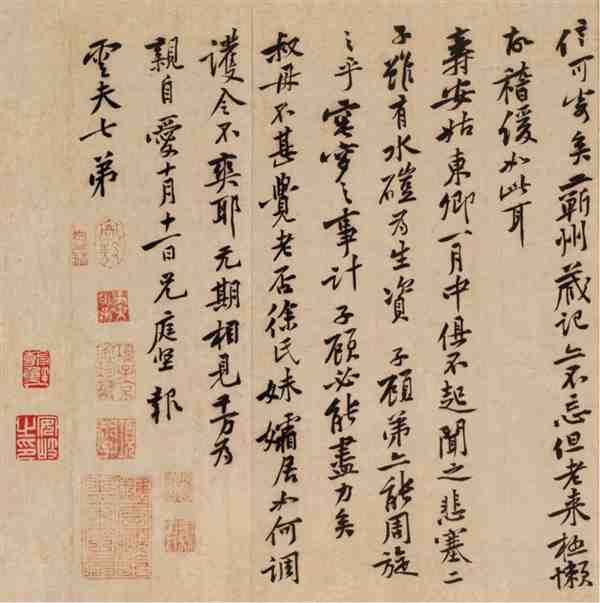 信可寄矣蘄州藏記亦不忘但老来極懶
故稽缓如此耳
壽安姑東卿一月中俱不起聞之悲塞二
子雖有水磑为生資子顧弟亦能周旋
之乎窀穸之事計子顧必能盡力矣
叔母不甚覺老否徐氏妹孀居如何調
護令不爽耶元期相見千万为
親自愛十月十一日兄庭堅報
雲夫七弟